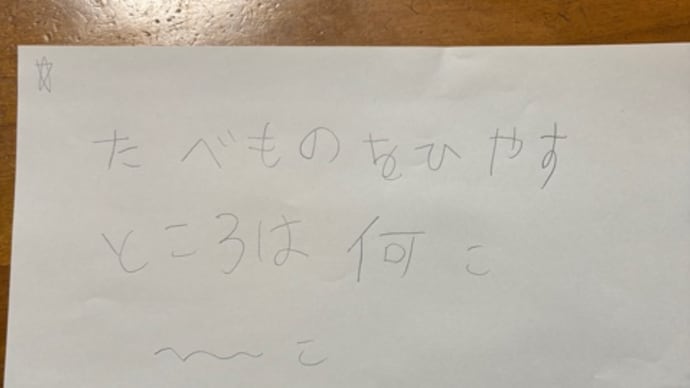 ☆
たべものをひやす
ところは何こ
〜〜こ